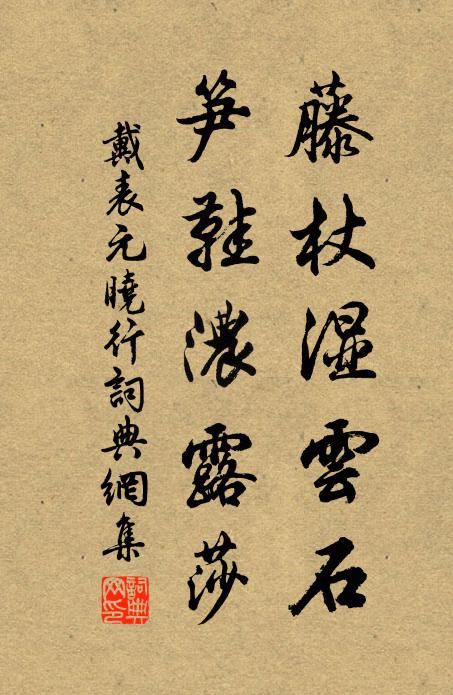 藤杖湿雲石
笋鞋濃露莎
戴表元曉行詞典網集
詞典网印